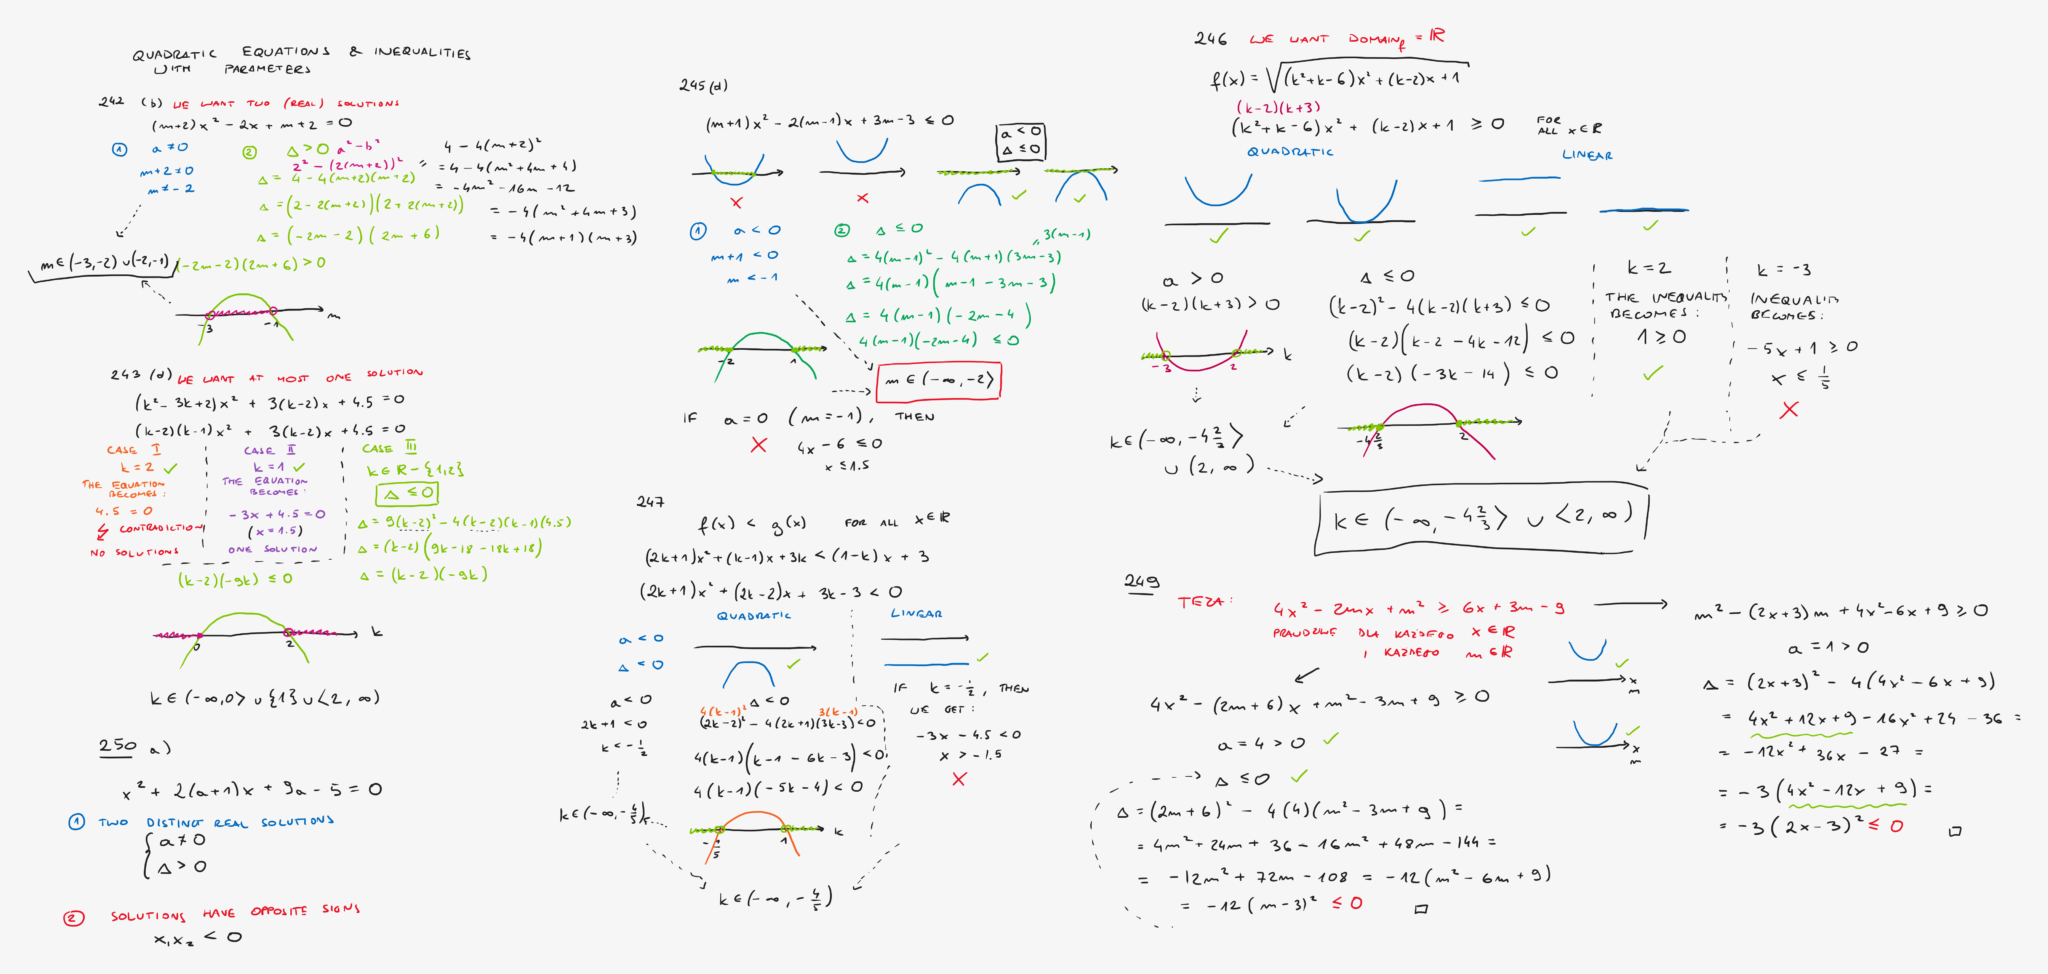 QUADRATIC EQUATIONS & INEQUALITIES
WITH PARAMETERS
242 (b) WE WANT TWO (REAL) SOLUTIONS
(m+2)x² - 2x + m+2 = 0
① a ≠ 0
m+2 ≠ 0
m ≠ -2
② Δ > 0 a²-b²
2² - (2(m+2))²
Δ = 4 - 4(m+2)(m+2)
Δ = (2 - 2(m+2))(2 + 2(m+2))
Δ = (-2m - 2)(2m + 6)
(-2m-2)(2m+6) > 0
4 - 4(m+2)²
= 4 - 4(m² + 4m + 4)
= -4m² - 16m - 12
= -4(m² + 4m + 3)
= -4(m+1)(m+3)
m ∈ (-3,-2) ∪ (-2,-1)
-3 -1 m
243 (d) WE WANT AT MOST ONE SOLUTION
(k² - 3k+2)x² + 3(k-2)x + 4.5 = 0
(k-2)(k-1)x² + 3(k-2)x + 4.5 = 0
CASE I
k = 2 ✓
THE EQUATION
BECOMES:
4.5 = 0
CONTRADICTION
NO SOLUTIONS
CASE II
k = 1 ✓
THE EQUATION
BECOMES:
-3x + 4.5 = 0
(x = 1.5)
ONE SOLUTION
CASE III
k ∈ R - {1,2}
Δ ≤ 0
Δ = 9(k-2)² - 4(k-2)(k-1)(4.5)
Δ = (k-2)(9k - 18 - 18k + 18)
Δ = (k-2)(-9k)
(k-2)(-9k) ≤ 0
0 2 k
k ∈ (-∞,0⟩ ∪ {1} ∪ ⟨2, ∞)
250 a)
x² + 2(a+1)x + 9a - 5 = 0
① TWO DISTINCT REAL SOLUTIONS
{ a ≠ 0
Δ > 0
② SOLUTIONS HAVE OPPOSITE SIGNS
x₁x₂ < 0
245 (d)
(m+1)x² - 2(m-1)x + 3m - 3 ≤ 0
a < 0
Δ ≤ 0
✗ ✗ ✓ ✓
① a < 0
m+1 < 0
m < -1
② Δ ≤ 0
3(m-1)
Δ = 4(m-1)² - 4(m+1)(3m-3)
Δ = 4(m-1)(m-1 - 3m - 3)
Δ = 4(m-1)(-2m-4)
4(m-1)(-2m-4) ≤ 0
-2 1
m ∈ (-∞, -2⟩
IF a = 0 (m = -1), THEN
✗ 4x - 6 ≤ 0
x ≤ 1.5
247
f(x) < g(x) FOR ALL x ∈ R
(2k+1)x² + (k-1)x + 3k < (1-k)x + 3
(2k+1)x² + (2k-2)x + 3k - 3 < 0
QUADRATIC LINEAR
a < 0
Δ < 0 ✓ ✓
a < 0
2k+1 < 0
k < -1/2
k ∈ (-∞, -4/5)
Δ < 0
4(k-1)² 3(k-1)
(2k-2)² - 4(2k+1)(3k-3) < 0
4(k-1)(k-1 - 6k - 3) < 0
4(k-1)(-5k-4) < 0
-4/5 1 k
IF k = -1/2, THEN
WE GET:
-3x - 4.5 < 0
x > -1.5
✗
k ∈ (-∞, -4/5)
246 WE WANT DOMAIN_f = R
f(x) = √((k²+k-6)x² + (k-2)x + 1)
(k-2)(k+3)
(k²+k-6)x² + (k-2)x + 1 ≥ 0 FOR
ALL x ∈ R
QUADRATIC LINEAR
✓ ✓ ✓ ✓
a > 0
(k-2)(k+3) > 0
-3 2 k
k ∈ (-∞, -4 2/3⟩
∪ (2, ∞)
Δ ≤ 0
(k-2)² - 4(k-2)(k+3) ≤ 0
(k-2)(k-2 - 4k - 12) ≤ 0
(k-2)(-3k - 14) ≤ 0
-4 2/3 2
k = 2
THE INEQUALITY
BECOMES:
1 ≥ 0
✓
k = -3
INEQUALITY
BECOMES:
-5x + 1 ≥ 0
x ≤ 1/5
✗
k ∈ (-∞, -4 2/3⟩ ∪ ⟨2, ∞)
249
TEZA: 4x² - 2mx + m² ≥ 6x + 3m - 9
PRAWDZIWE DLA KAŻDEGO x ∈ R
I KAŻDEGO m ∈ R
4x² - (2m+6)x + m² - 3m + 9 ≥ 0
a = 4 > 0 ✓
Δ ≤ 0 ✓
Δ = (2m+6)² - 4(4)(m² - 3m + 9) =
= 4m² + 24m + 36 - 16m² + 48m - 144 =
= -12m² + 72m - 108 = -12(m² - 6m + 9)
= -12(m-3)² ≤ 0 □
✓ x
m
✓ x
m
m² - (2x+3)m + 4x² - 6x + 9 ≥ 0
a = 1 > 0
Δ = (2x+3)² - 4(4x² - 6x + 9)
= 4x² + 12x + 9 - 16x² + 24 - 36 =
= -12x² + 36x - 27 =
= -3(4x² - 12x + 9) =
= -3(2x-3)² ≤ 0 □